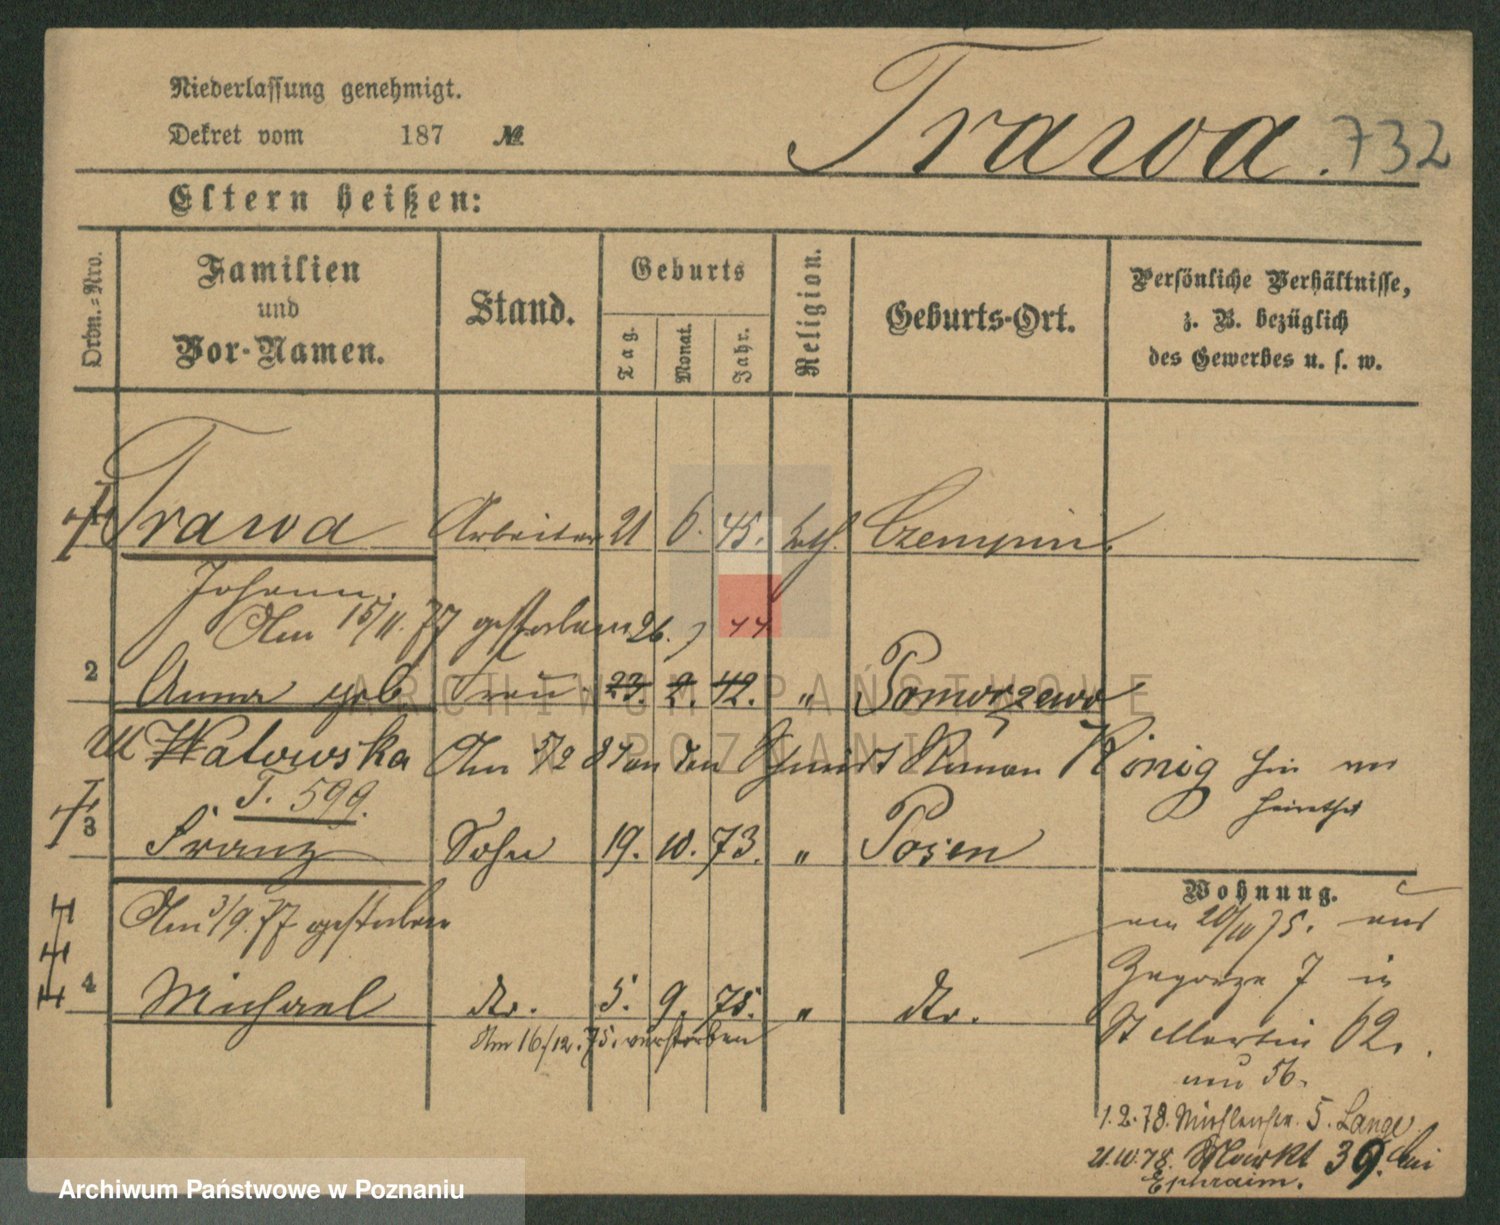 Niederlassung genehmigt.
Dekret vom 187 №
Trawa. 732
Eltern heißen:
Ordn.-Nro.
Familien
und
Vor-Namen.
Stand.
Geburts
Tag.
Monat.
Jahr.
Religion.
Geburts-Ort.
Persönliche Verhältnisse,
z. B. bezüglich
des Gewerbes u. s. w.
Trawa Arbeiter 21 6. 45. kath. Czempin.
Johann.
Am 15/11. 77 gestorben 26.
2 Anna geb Frau 23. 2. 42. " Pomorzewo
Watowska Am 5/2 81 an den Schmidt Roman König hier
T. 599.
3 Franz Sohn 19. 10. 73. " Posen
Am 3/9. 77 gestorben
4 Michael do. 5. 9. 75. " do.
Am 16/12. 75. verstorben
Wohnung.
am 20/10 75. aus
Zagorze 7 in
St Martin 62.
neu 56.
1.2.78. Mühlenstr. 5. Lange
39. bei
Ephraim.
ARCHIWUM PAŃSTWOWE
W POZNANIU
Archiwum Państwowe w Poznaniu